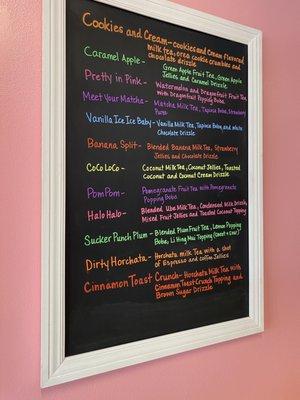 Cookies and Cream - cookies and cream flavored
milk tea, oreo cookie crumbles and
chocolate drizzle
Caramel Apple - Green Apple Fruit Tea, Green Apple
Jellies and Caramel Drizzle
Pretty in Pink - Watermelon and Dragonfruit Fruit Tea
with Dragonfruit Popping Boba
Meet Your Matcha - Matcha Milk Tea, Tapioca Boba, Strawberry
Puree
Vanilla Ice Ice Baby - Vanilla Milk Tea, Tapioca Boba, and White
Chocolate Drizzle
Banana Split - Blended Banana Milk Tea, Strawberry
Jellies and Chocolate Drizzle
CoCo LoCo - Coconut Milk Tea, Coconut Jellies, Toasted
Coconut and Coconut Cream Drizzle
PomPom - Pomegranate Fruit Tea with Pomegranate
Popping Boba
Halo Halo - Blended Ube Milk Tea, Condensed Milk Drizzle,
Mixed Fruit Jellies and Toasted Coconut Topping
Sucker Punch Plum - Blended Plum Fruit Tea, Lemon Popping
Boba, Li Hing Mui Topping (sweet + sour)
Dirty Horchata - Horchata milk Tea with a shot
of Espresso and Coffee Jellies
Cinnamon Toast Crunch - Horchata Milk Tea with
Cinnamon Toast Crunch Topping and
Brown Sugar Drizzle